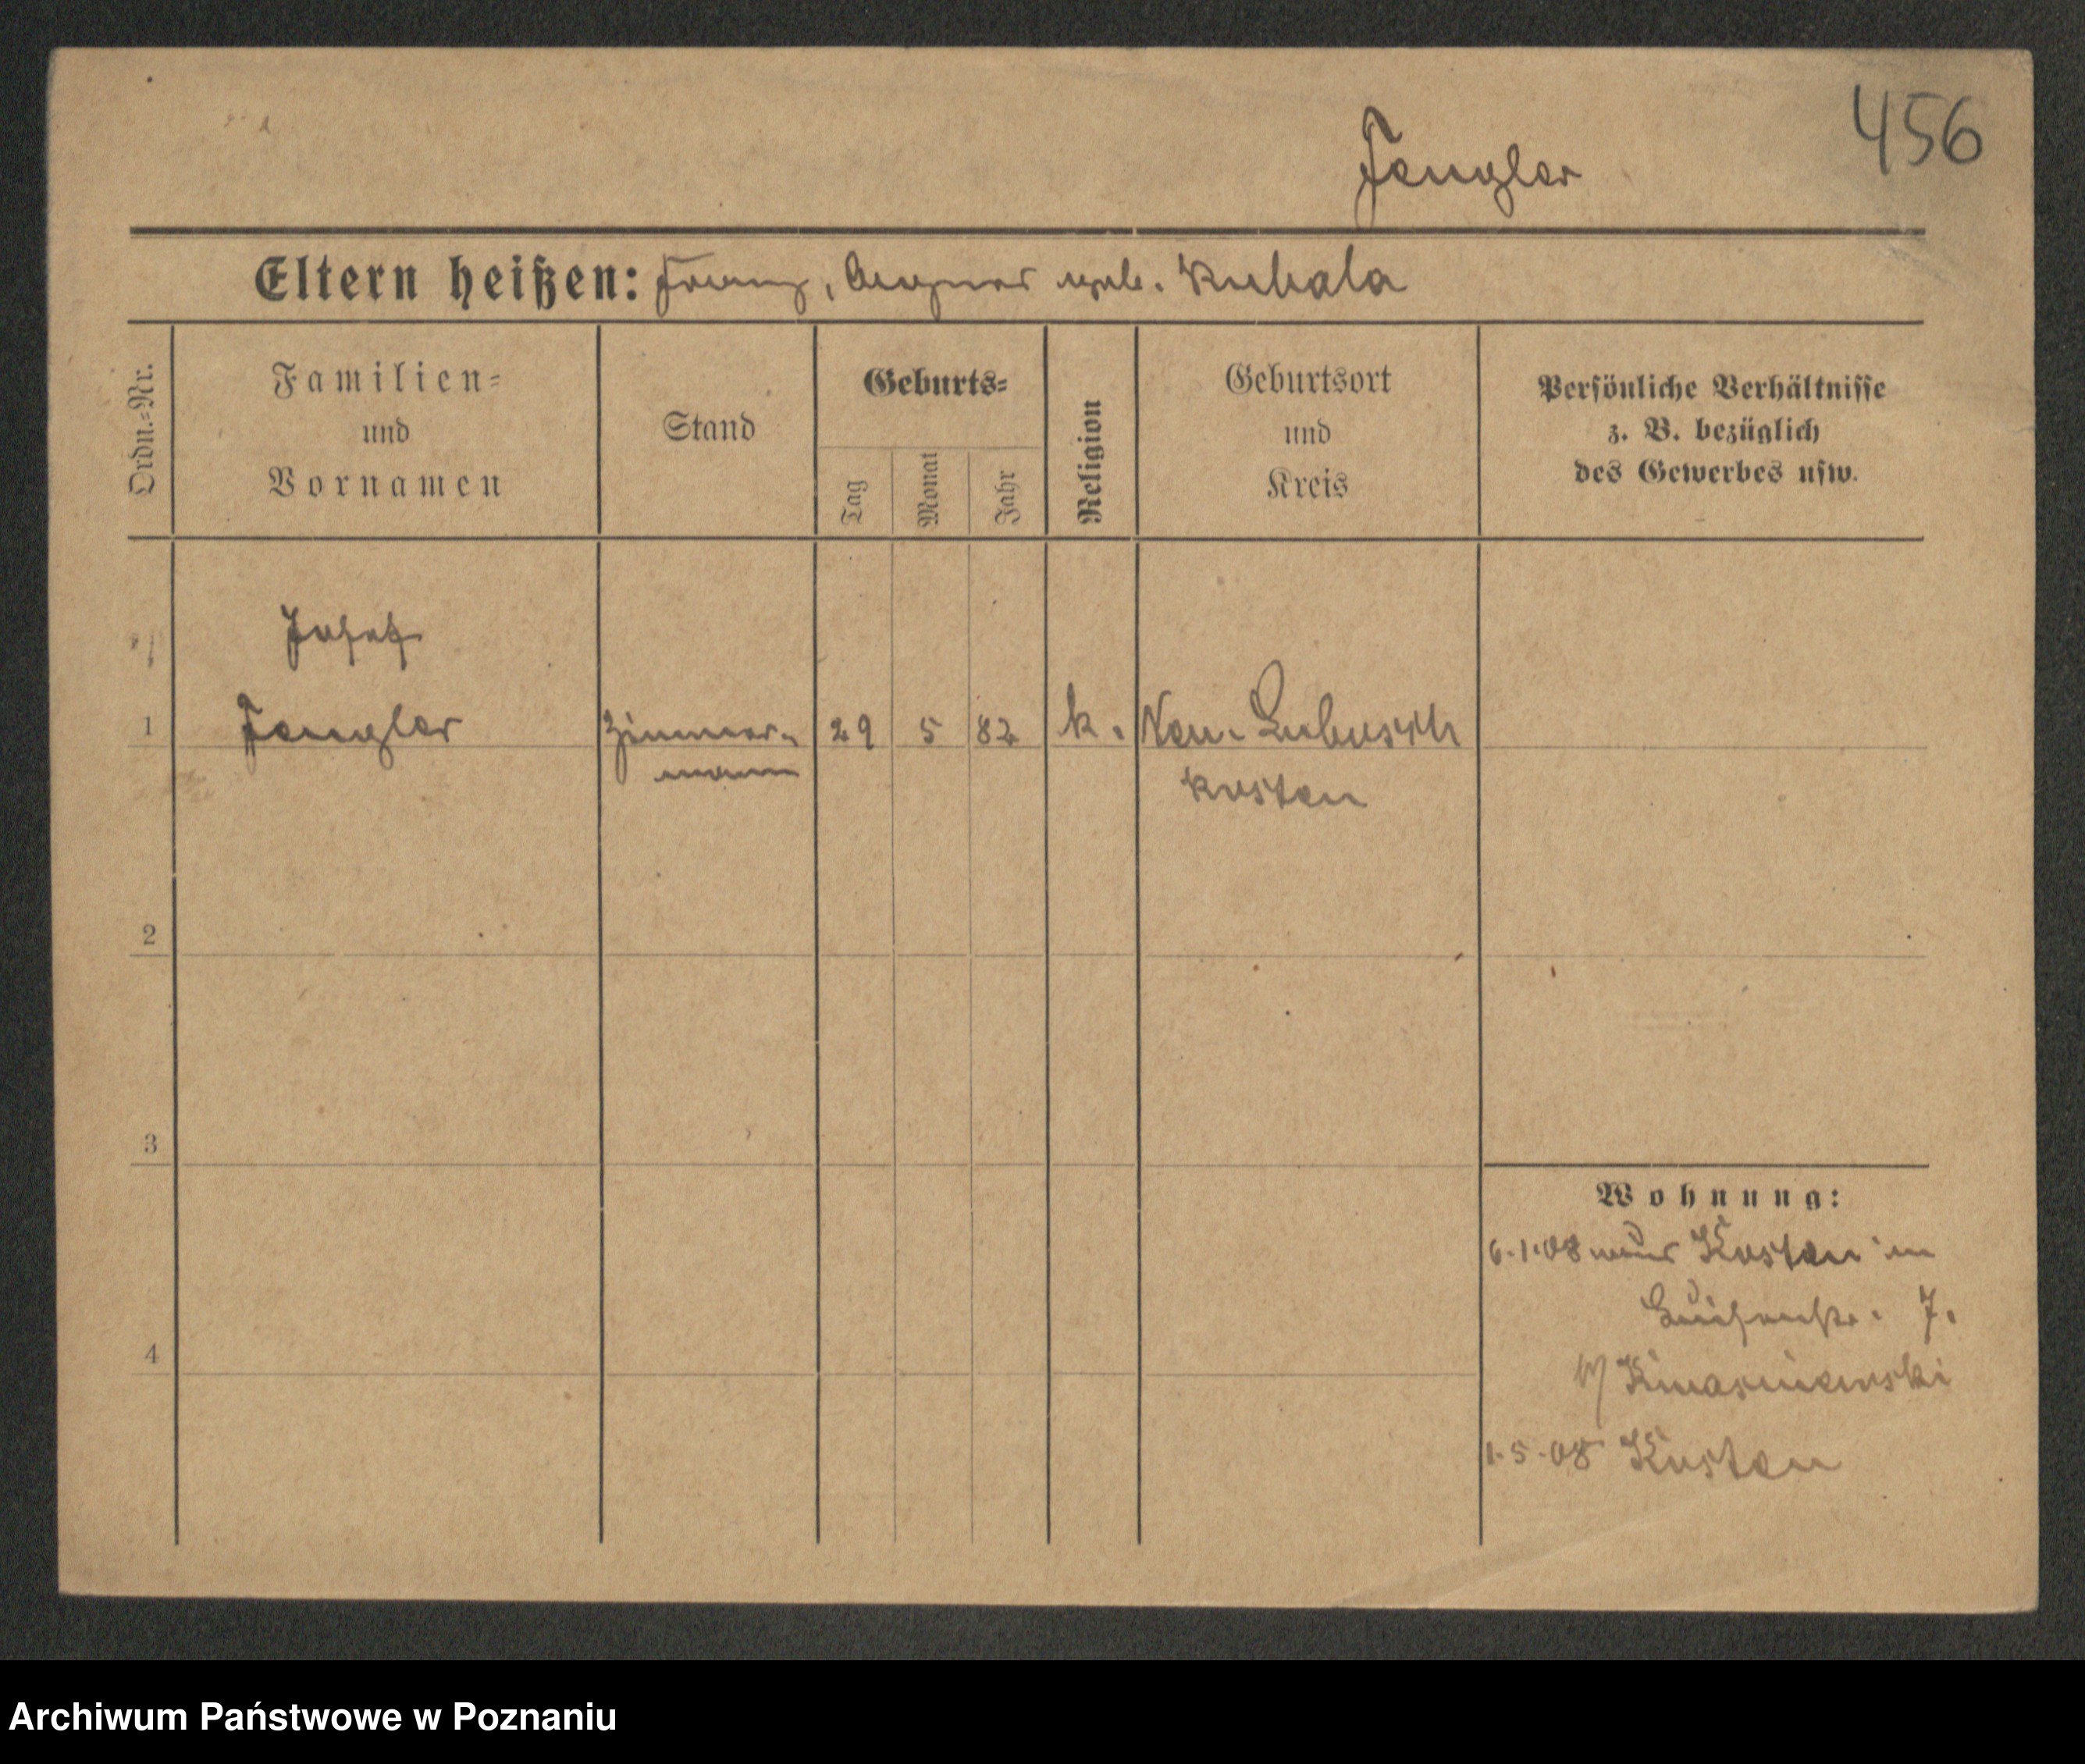 456
Fengler
Eltern heißen: Franz, Agnes geb. Kubala
Ordn.=Nr.
Familien=
und
Vornamen
Stand
Geburts=
Tag
Monat
Jahr
Religion
Geburtsort
und
Kreis
Persönliche Verhältnisse
z. B. bezüglich
des Gewerbes usw.
Josef
1 Fengler Zimmer- 29 5 82 k. Neu-Lubosch
mann Kosten
2
3
4
Wohnung:
6.1.08 aus Kosten in
Luisenstr. 7.
Kosten
1.5.08
Archiwum Państwowe w Poznaniu